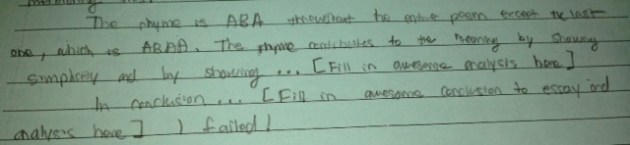 The rhyme is ABA throughout the entire poem except the last
one, which is ABAA. The rhyme contributes to the meaning by showing
simplicity and by showing ... [Fill in awesome analysis here]
In conclusion ... [Fill in awesome conclusion to essay and
analysis here] I failed!